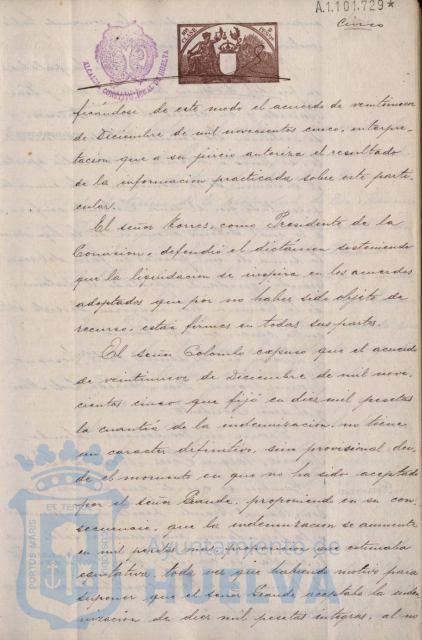 A.1.101.729*
Cinco
ALCALDIA CONSTITUCIONAL DE HUELVA
ficándose de este modo el acuerdo de veintinueve
de Diciembre de mil novecientos cinco, interpre-
tacion que a su juicio autoriza el resultado
de la informacion practicada sobre este parti-
cular.
El señor Torres, como Presidente de la
Comision, defendió el dictámen sosteniendo
que la liquidacion se inspira en los acuerdos
adoptados que por no haber sido objeto de
recurso, están firmes en todas sus partes.
El señor Colombo expuso que el acuerdo
de veintinueve de Diciembre de mil nove-
cientos cinco que fijó en diez mil pesetas
la cuantía de la indemnizacion, no tiene
un caracter definitivo, sino provisional des-
de el momento en que no ha sido aceptado
por el señor Grande, proponiendo en su con-
secuencia, que la indemnizacion se aumente
en mil pesetas mas, proposicion que estimaba
equitativa, toda vez que habiendo motivo para
suponer que el señor Grande aceptaba la indem-
nizacion de diez mil pesetas integras, al no
PORTUS MARIS
ET TERRÆ
Ayuntamiento de
HUELVA